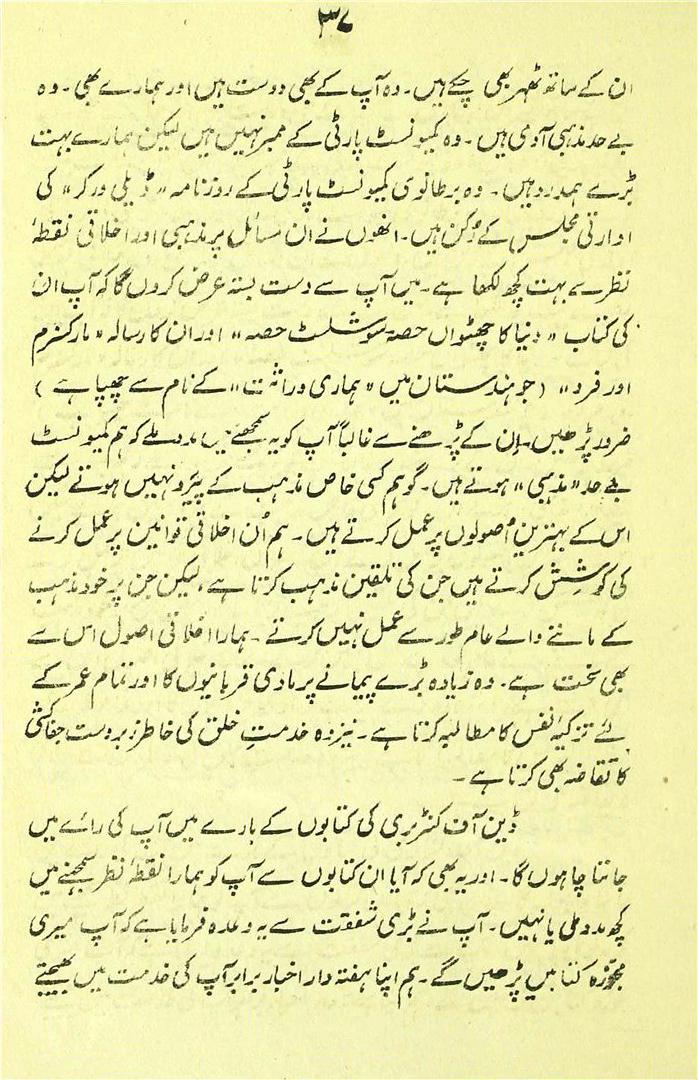 ۳۷
ان کے ساتھ ٹھہر بھی چکے ہیں۔ وہ آپ کے بھی دوست ہیں اور ہمارے بھی۔ وہ
بے حد مذہبی آدمی ہیں۔ وہ کمیونسٹ پارٹی کے ممبر نہیں ہیں لیکن ہمارے بہت
بڑے ہمدرد ہیں۔ وہ برطانوی کمیونسٹ پارٹی کے روزنامہ "ڈیلی ورکر" کی
ادارتی مجلس کے رُکن ہیں۔ انھوں نے ان مسائل پر مذہبی اور اخلاقی نقطۂ
نظر سے بہت کچھ لکھا ہے۔ میں آپ سے دست بستہ عرض کروں گا کہ آپ ان
کی کتاب "دنیا کا چھٹواں حصہ سوشلسٹ حصہ" اور ان کا رسالہ "مارکسزم
اور فرد" (جو ہندستان میں "ہماری وراثت" کے نام سے چھپا ہے)
ضرور پڑھیں۔ اِن کے پڑھنے سے غالباً آپ کو یہ سمجھنے میں مدد ملے کہ ہم کمیونسٹ
بے حد "مذہبی" ہوتے ہیں۔ گو ہم کسی خاص مذہب کے پیرو نہیں ہوتے لیکن
اس کے بہترین اُصولوں پر عمل کرتے ہیں۔ ہم اُن اخلاقی قوانین پر عمل کرنے
کی کوشِش کرتے ہیں جن کی تلقین مذہب کرتا ہے، لیکن جن پر خود مذہب
کے ماننے والے عام طور سے عمل نہیں کرتے۔ ہمارا اخلاقی اصول اس سے
بھی سخت ہے۔ وہ زیادہ بڑے پیمانے پر مادی قربانیوں کا اور تمام عمر کے
لئے تزکیۂ نفس کا مطالبہ کرتا ہے۔ نیز وہ خدمتِ خلق کی خاطر زبردست جفاکشی
کا تقاضہ بھی کرتا ہے۔
ڈین آف کنٹربری کی کتابوں کے بارے میں آپ کی رائے میں
جاننا چاہوں گا۔ اور یہ بھی کہ آیا ان کتابوں سے آپ کو ہمارا نقطۂ نظر سمجھنے میں
کچھ مدد ملی یا نہیں۔ آپ نے بڑی شفقت سے یہ وعدہ فرمایا ہے کہ آپ میری
مجوّزہ کتابیں پڑھیں گے۔ ہم اپنا ہفتہ وار اخبار برابر آپ کی خدمت میں بھیجتے